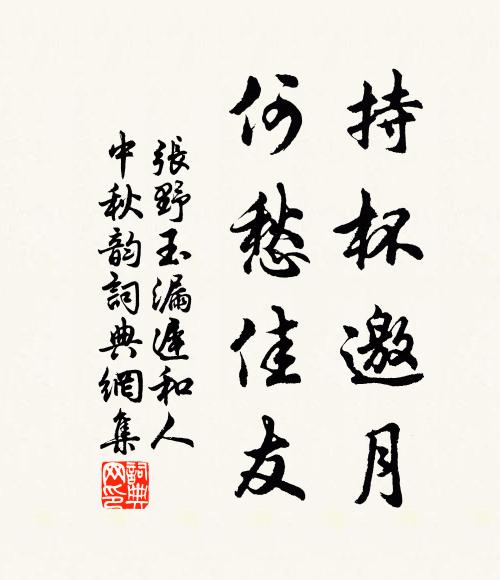 持杯邀月
何愁佳友
張野玉漏遲和人
中秋韵詞典網集
詞典
网印